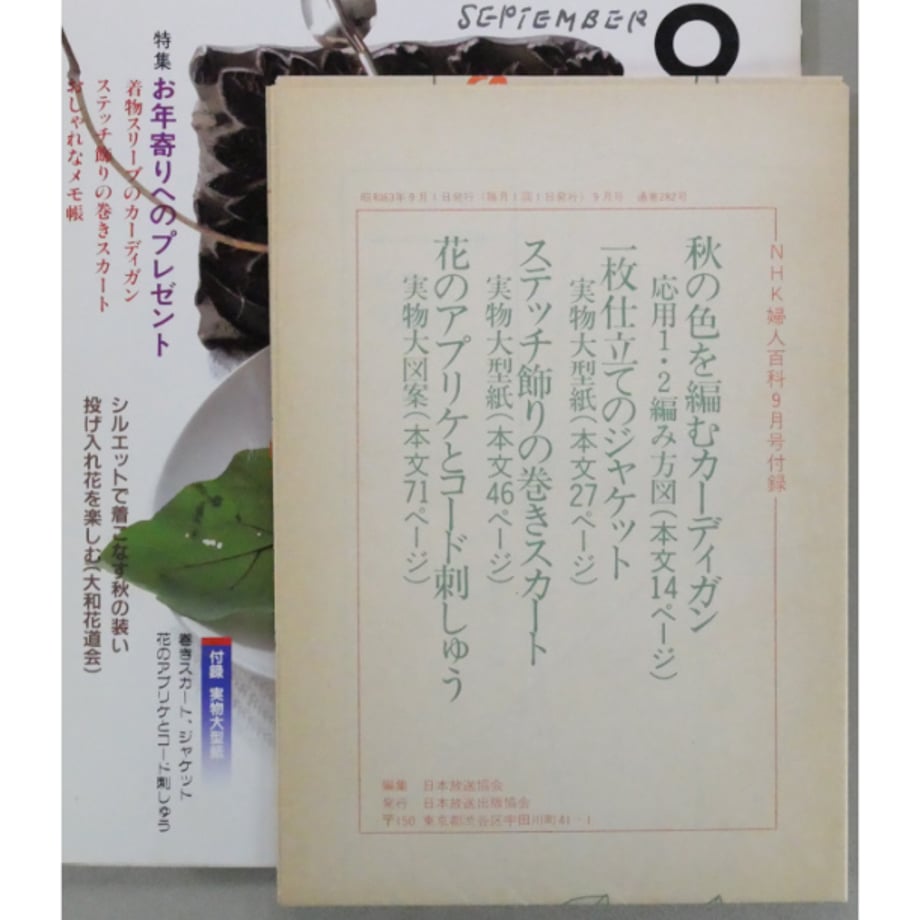 SEPTEMBER
特集 お年寄りへのプレゼント
着物スリーブのカーディガン
ステッチ飾りの巻きスカート
おしゃれなメモ帳
シルエットで着こなす秋の装い
投げ入れ花を楽しむ(大和花道会)
付録 実物大型紙
巻きスカート、ジャケット
花のアプリケとコード刺しゅう
昭和63年9月1日発行(毎月1回1日発行)9月号 通巻282号
NHK婦人百科9月号付録
秋の色を編むカーディガン
応用1・2編み方図(本文14ページ)
一枚仕立てのジャケット
実物大型紙(本文27ページ)
ステッチ飾りの巻きスカート
実物大型紙(本文46ページ)
花のアプリケとコード刺しゅう
実物大図案(本文71ページ)
編集 日本放送協会
発行 日本放送出版協会
〒150 東京都渋谷区宇田川町41-1